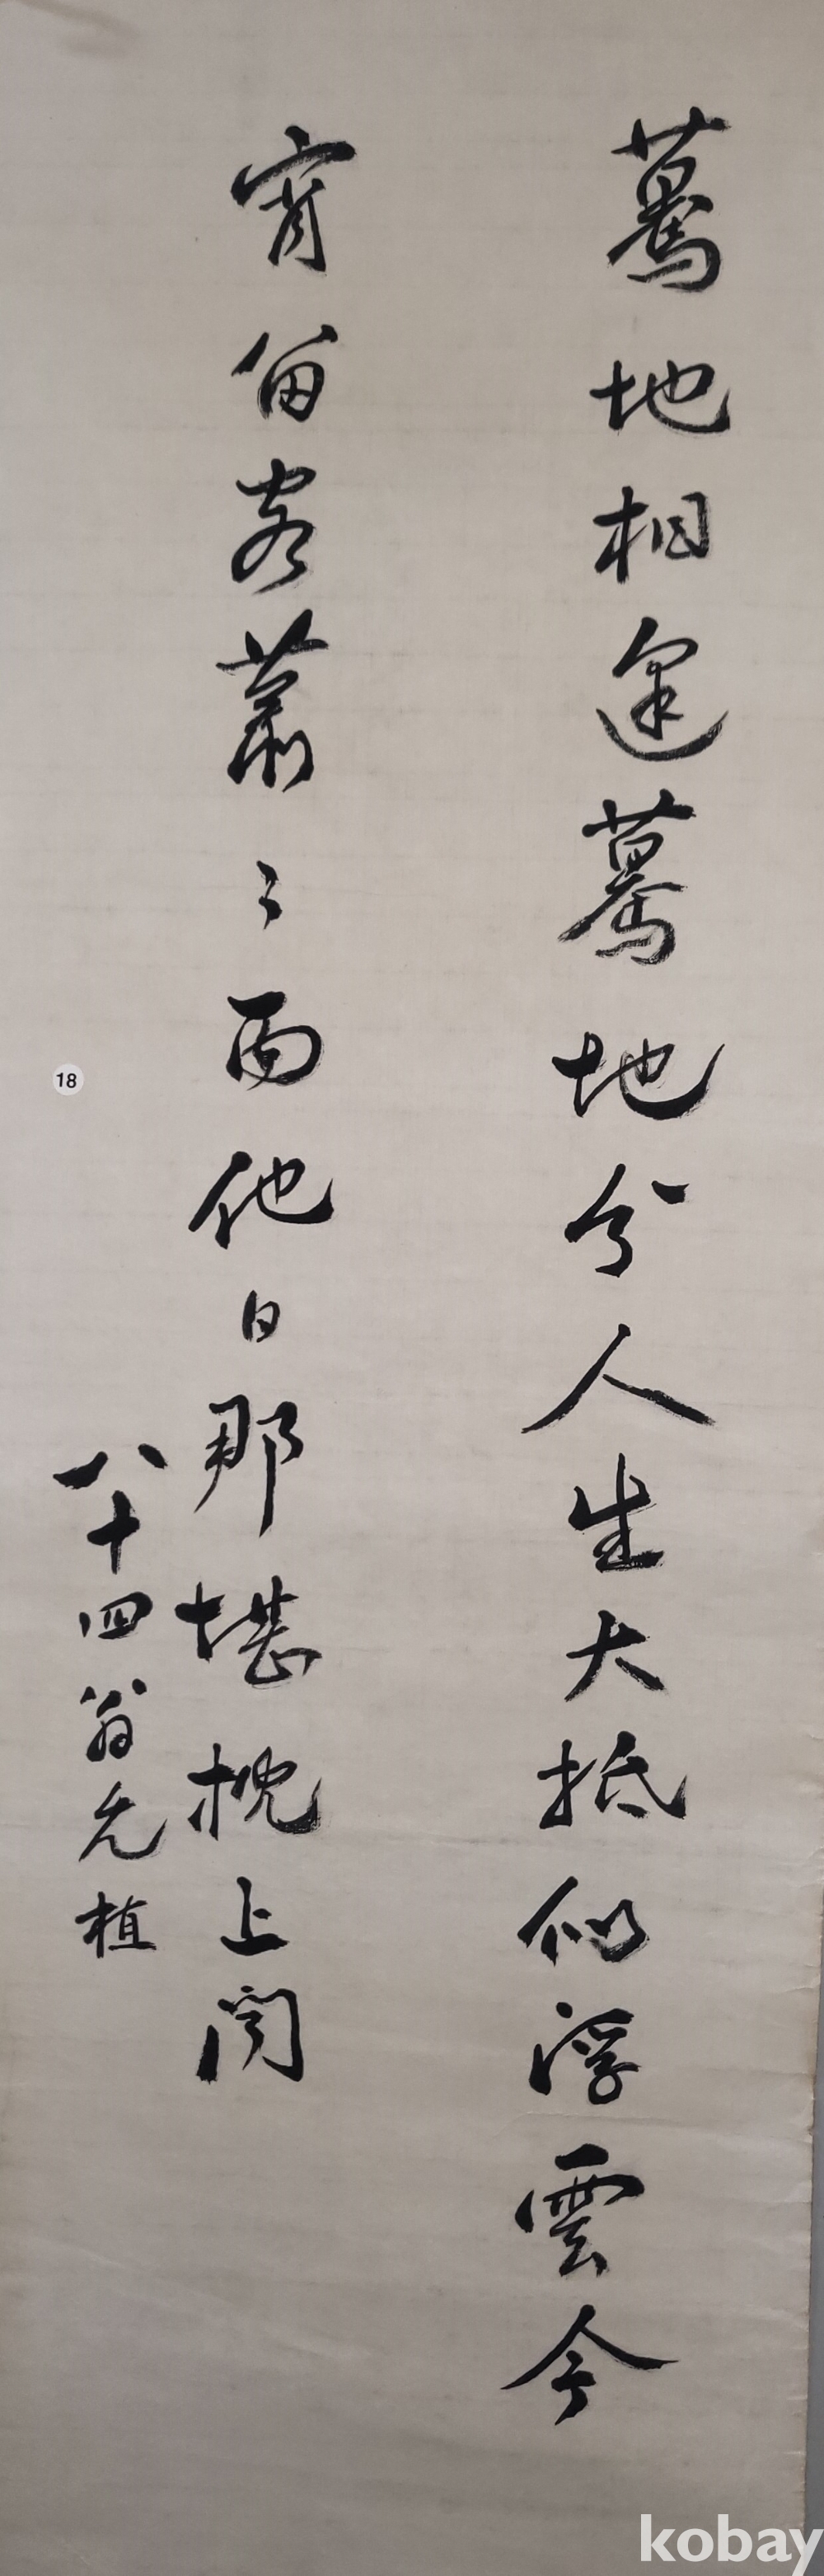 驀地相逢驀地分人生大抵似浮雲今
宵留客蕭〻雨他日那堪枕上聞
八十四翁允植
18
kobay